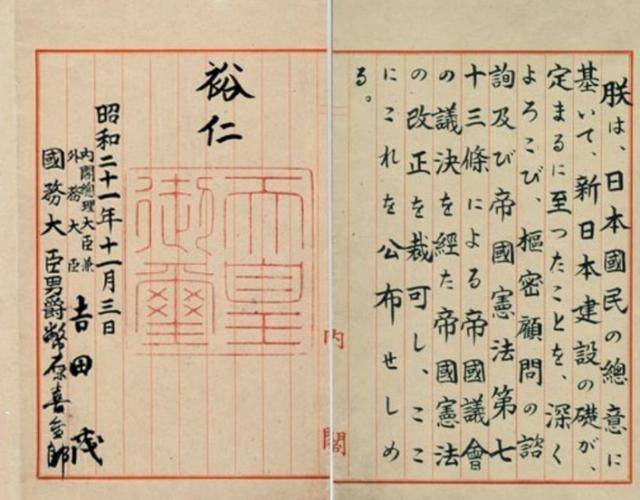 朕は、日本國民の總意に
基いて、新日本建設の礎が、
定まるに至つたことを、深く
よろこび、樞密顧問の諮
詢及び帝國憲法第七
十三條による帝國議會
の議決を経た帝國憲法
の改正を裁可し、ここ
にこれを公布せしめ
る。
裕仁
天皇御璽
昭和二十一年十一月三日
内閣總理大臣兼
外務大臣
吉田茂
國務大臣男爵幣原喜重郎
内閣